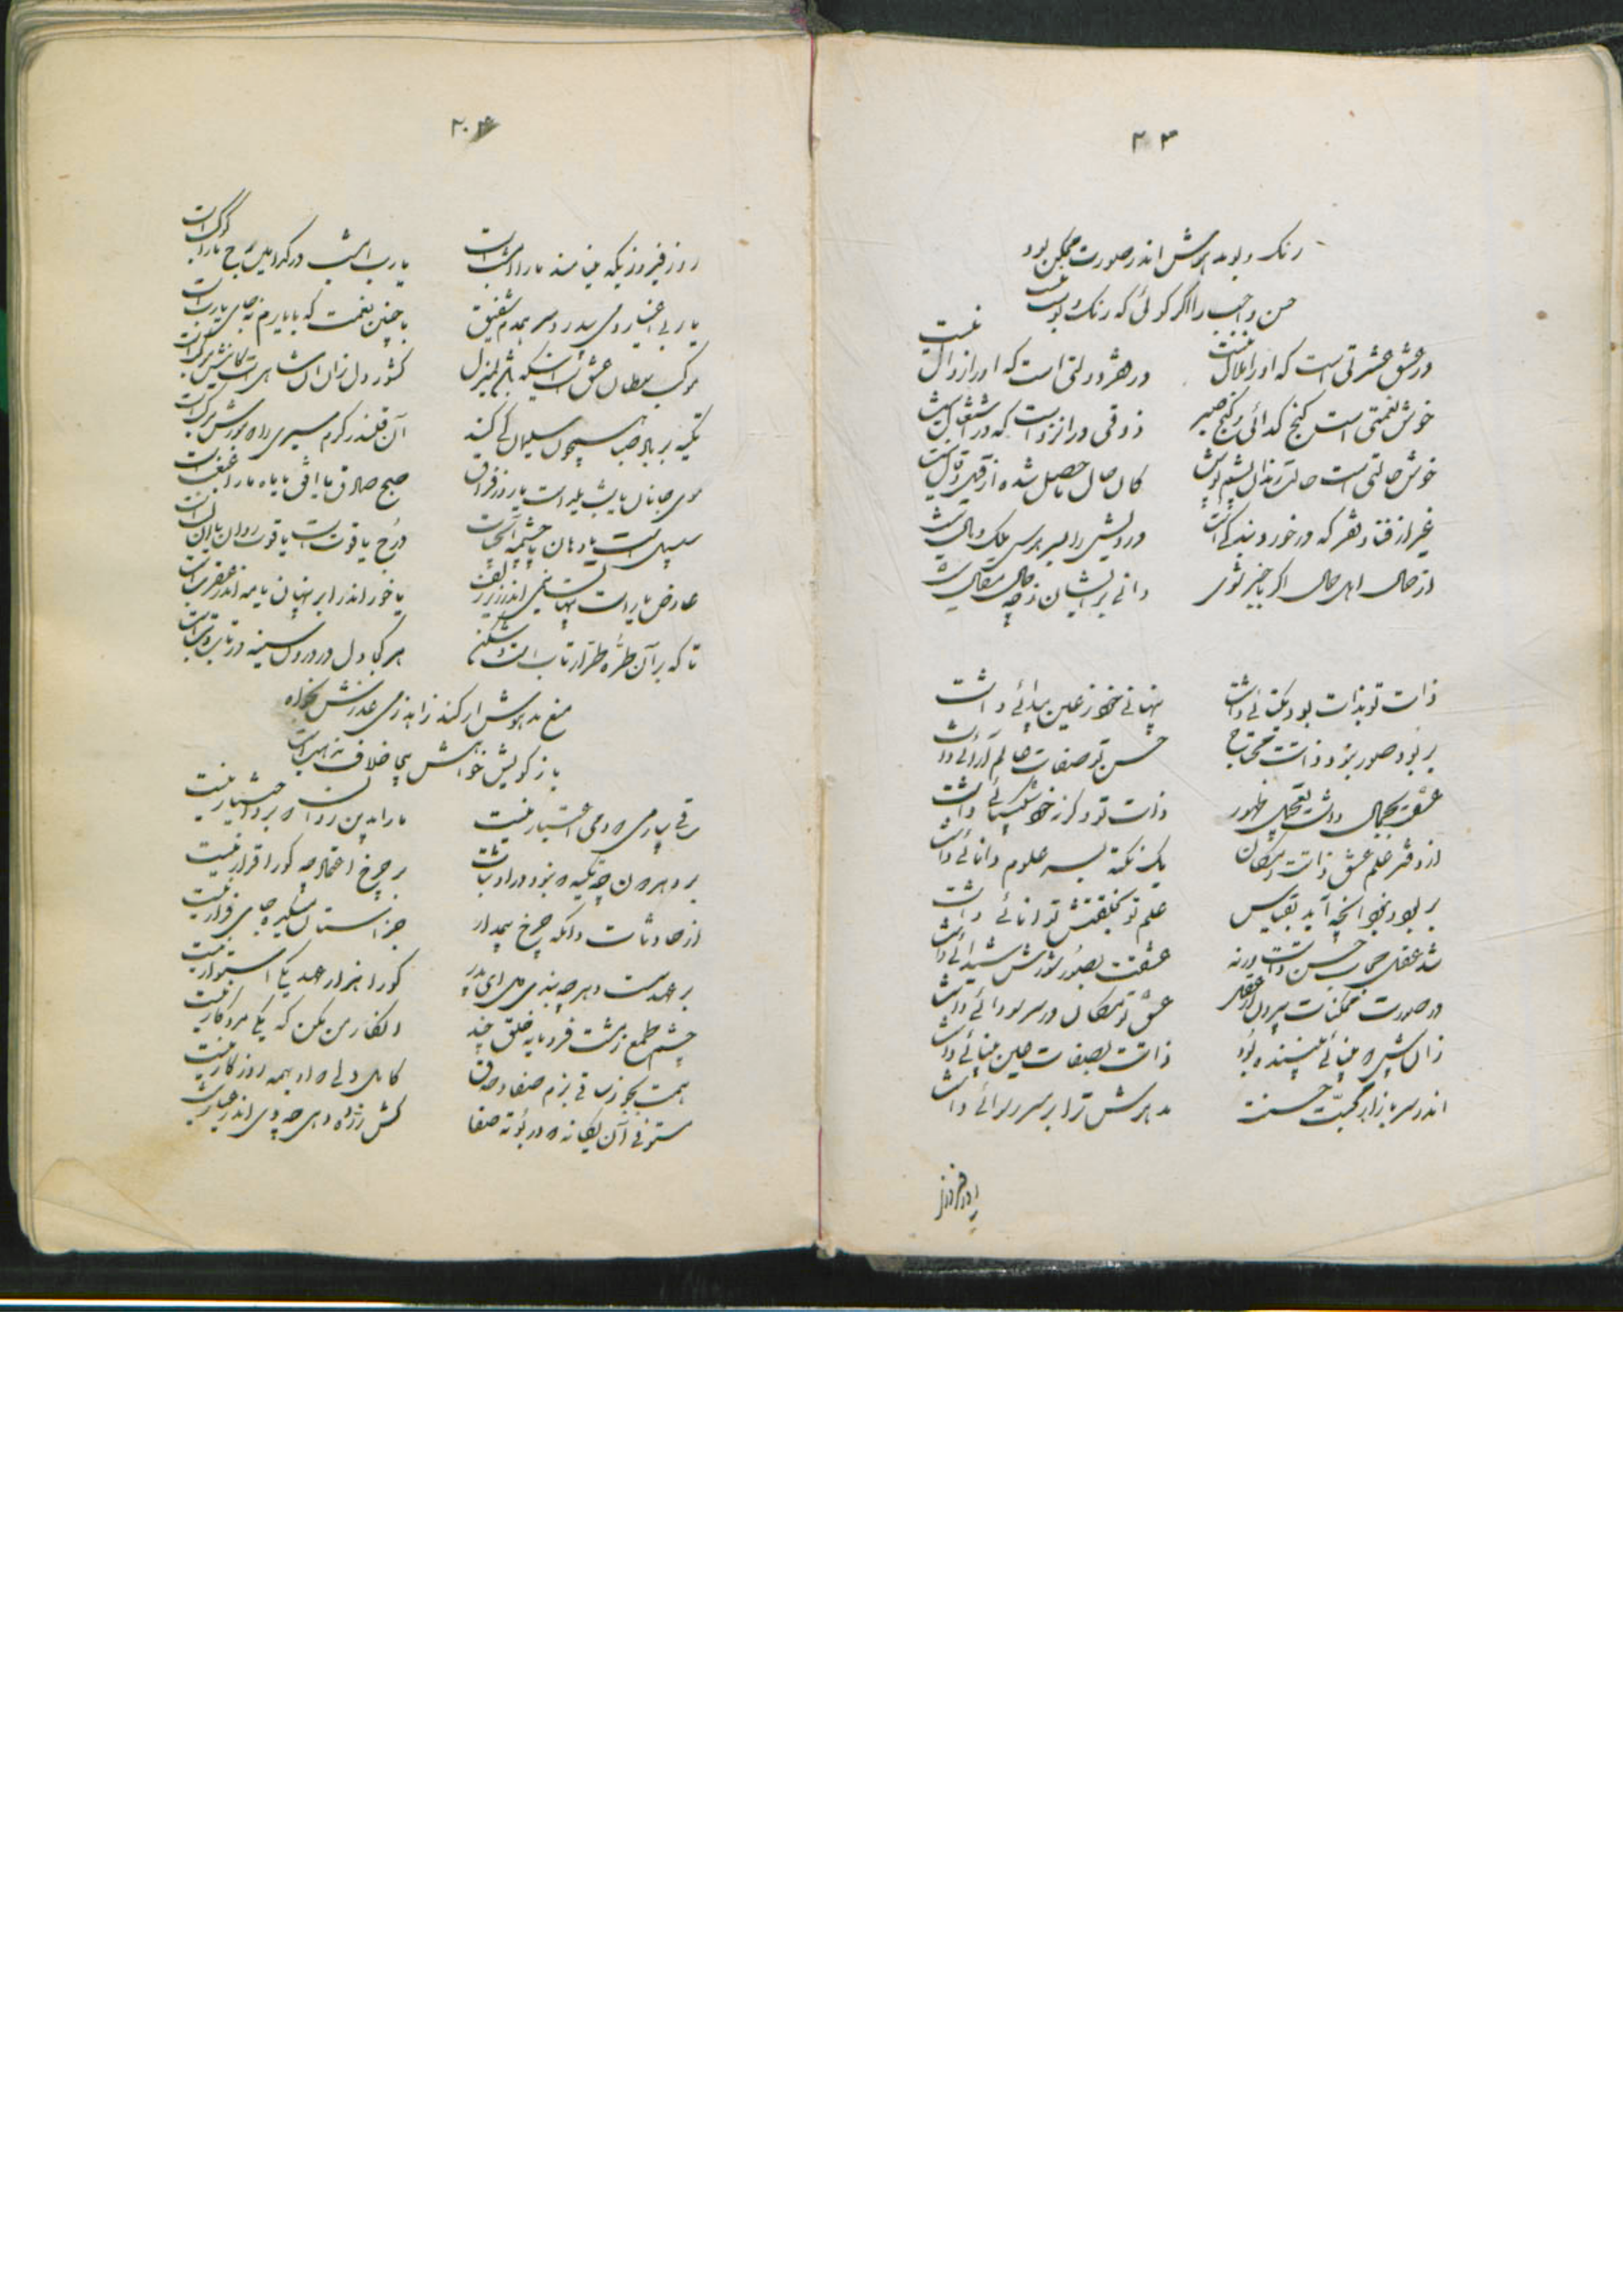 ۲۰۳
رنگ و بو مدهوش اندر صورت ممکن بود
حسن واجب را اگر گوئی که رنگ و بوست نیست
در عشق عشرتی است که او را ملال نیست
در فقر دولتی است که او را زوال نیست
خوش نعمتی است کنج گدائی و گنج صبر
ذوقی در انزواست که در اشتغال نیست
خوش حالتی است حالت رندان پشم پوش
کان حال حاصل شده از قیل و قال نیست
غیر از فنا و فقر که در خورد بندگی است
درویش را بسر هوس ملک و مال نیست
از حال اهل حال اگر باخبر شوی
دانی بر ایشان ز چه حال مقال نیست
ذات تو بذات بود یکتائی داشت
پنهانی خود ز عین پیدائی داشت
بر بود صور نبود ذاتت محتاج
حسن تو صفات عالم آرائی داشت
عشقت بجمال داشت تعجیل ظهور
ذات تو وگرنه خود شکیبائی داشت
از دفتر علم عشق ذاتت بمکان
یک نکته بسر علوم دانائی داشت
بر بود و نبود آنچه آید بقیاس
علم تو بخلقتش توانائی داشت
شد عقل حجاب حسن ذاتت ورنه
عشقت بصور شورش شیدائی داشت
در صورت ممکنات بیرون از عقل
عشق تو بمکان در سر سودائی داشت
زان پیش که بینائی بیننده بود
ذاتت بصفات عین بینائی داشت
اندر سر بازار محبت حسنت
مدهوش ترا بر سر رسوائی داشت
روز فیروز
۲۰۴
روز فیروزیکه مینامند ما را امشب است
یارب امشب در کدامین برج ما را کوکب است
یار بی اغیار و می بیدرد سر همدم شفیق
با چنین نعمت که با یارم نه جای یارب است
موکب سلطان عشق است اینکه باشد منزل
کشور دل زان آن شاهی است کانش مرکب است
تکیه بر باد صبا همچون سلیمان کی کند
آن قلندر کرم سیری را که مورش مرکب است
موی جانان یا شب یلداست یا روز فراق
صبح صادق یا افق یا ماه ما را غبغب است
سلسبیل است یا دهان یا چشمه آبحیات
درج یاقوت است یا قوت روان یا آن لب است
عارض یار است پنهان نیمی اندر زیر زلف
یا خور اندر ابر پنهان یا مه اندر عقرب است
تا که بر آن طره طرار تاب است و شکنج
هر کجا دل در درون سینه در تاب و تب است
منع مدهوش ار کند زاهد ز می عذرش بخواه
باز گویش خواهش بی خلاف مذهب است
ساقی بیار می که دمی اعتبار نیست
ما را بدین روان که برد اختیار نیست
بر دهر دون چه تکیه که نبود در او ثبات
بر چرخ اعتماد چه کو را قرار نیست
از حادثات دانکه چرخ بیمدار
جز آستان میکده جای فرار نیست
بر عهد سست دهر چه بندی دل ای پدر
کو را هزار عهد یکی استوار نیست
چشم طمع ز پشت فرومایه خلق چند
انکار من مکن که یکی مرد کار نیست
همت بجو ز ساقی بزم صفا و صدق
کامل دلی که او بهمه روزگار نیست
مستوفی آن یگانه که در بوته صفا